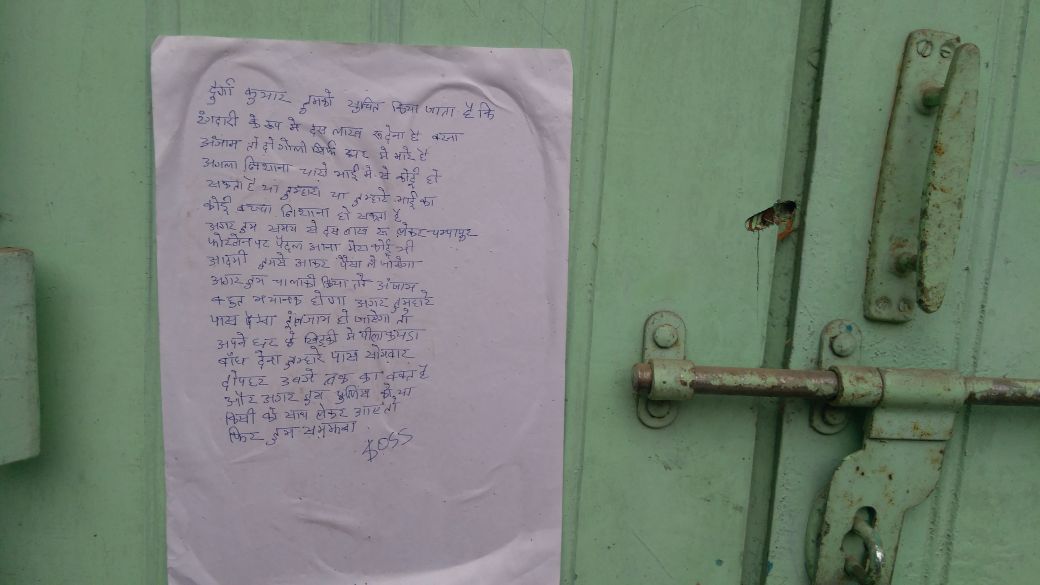 दुर्गा कुमार तुमको सुचित किया जाता है कि
रंगदारी के रूप में दस लाख रू देना है वरना
अंजाम तो दो गोली सिर्फ घर में मारे है
अगला निशाना चारो भाई में से कोई हो
सकता है या तुम्हारा या तुम्हारे भाई का
कोई बच्चा निशाना हो सकता है
अगर तुम समय से दस लाख रू लेकर चम्पापुर
पर पैदल आना मेरा कोई भी
आदमी तुमसे आकर पैसा ले जायेगा
अगर तुम चालाकी किया तो अंजाम
बहुत भयानक होगा अगर तुम्हारे
पास पैसा इंतजाम हो जायेगा तो
अपने घर के खिड़की में पीला कपड़ा
बाँध देना तुम्हारे पास सोमवार
दोपहर 3 बजे तक का वक्त है
और अगर तुम पुलिस को या
किसी को साथ लेकर आए तो
फिर तुम समझना
BOSS